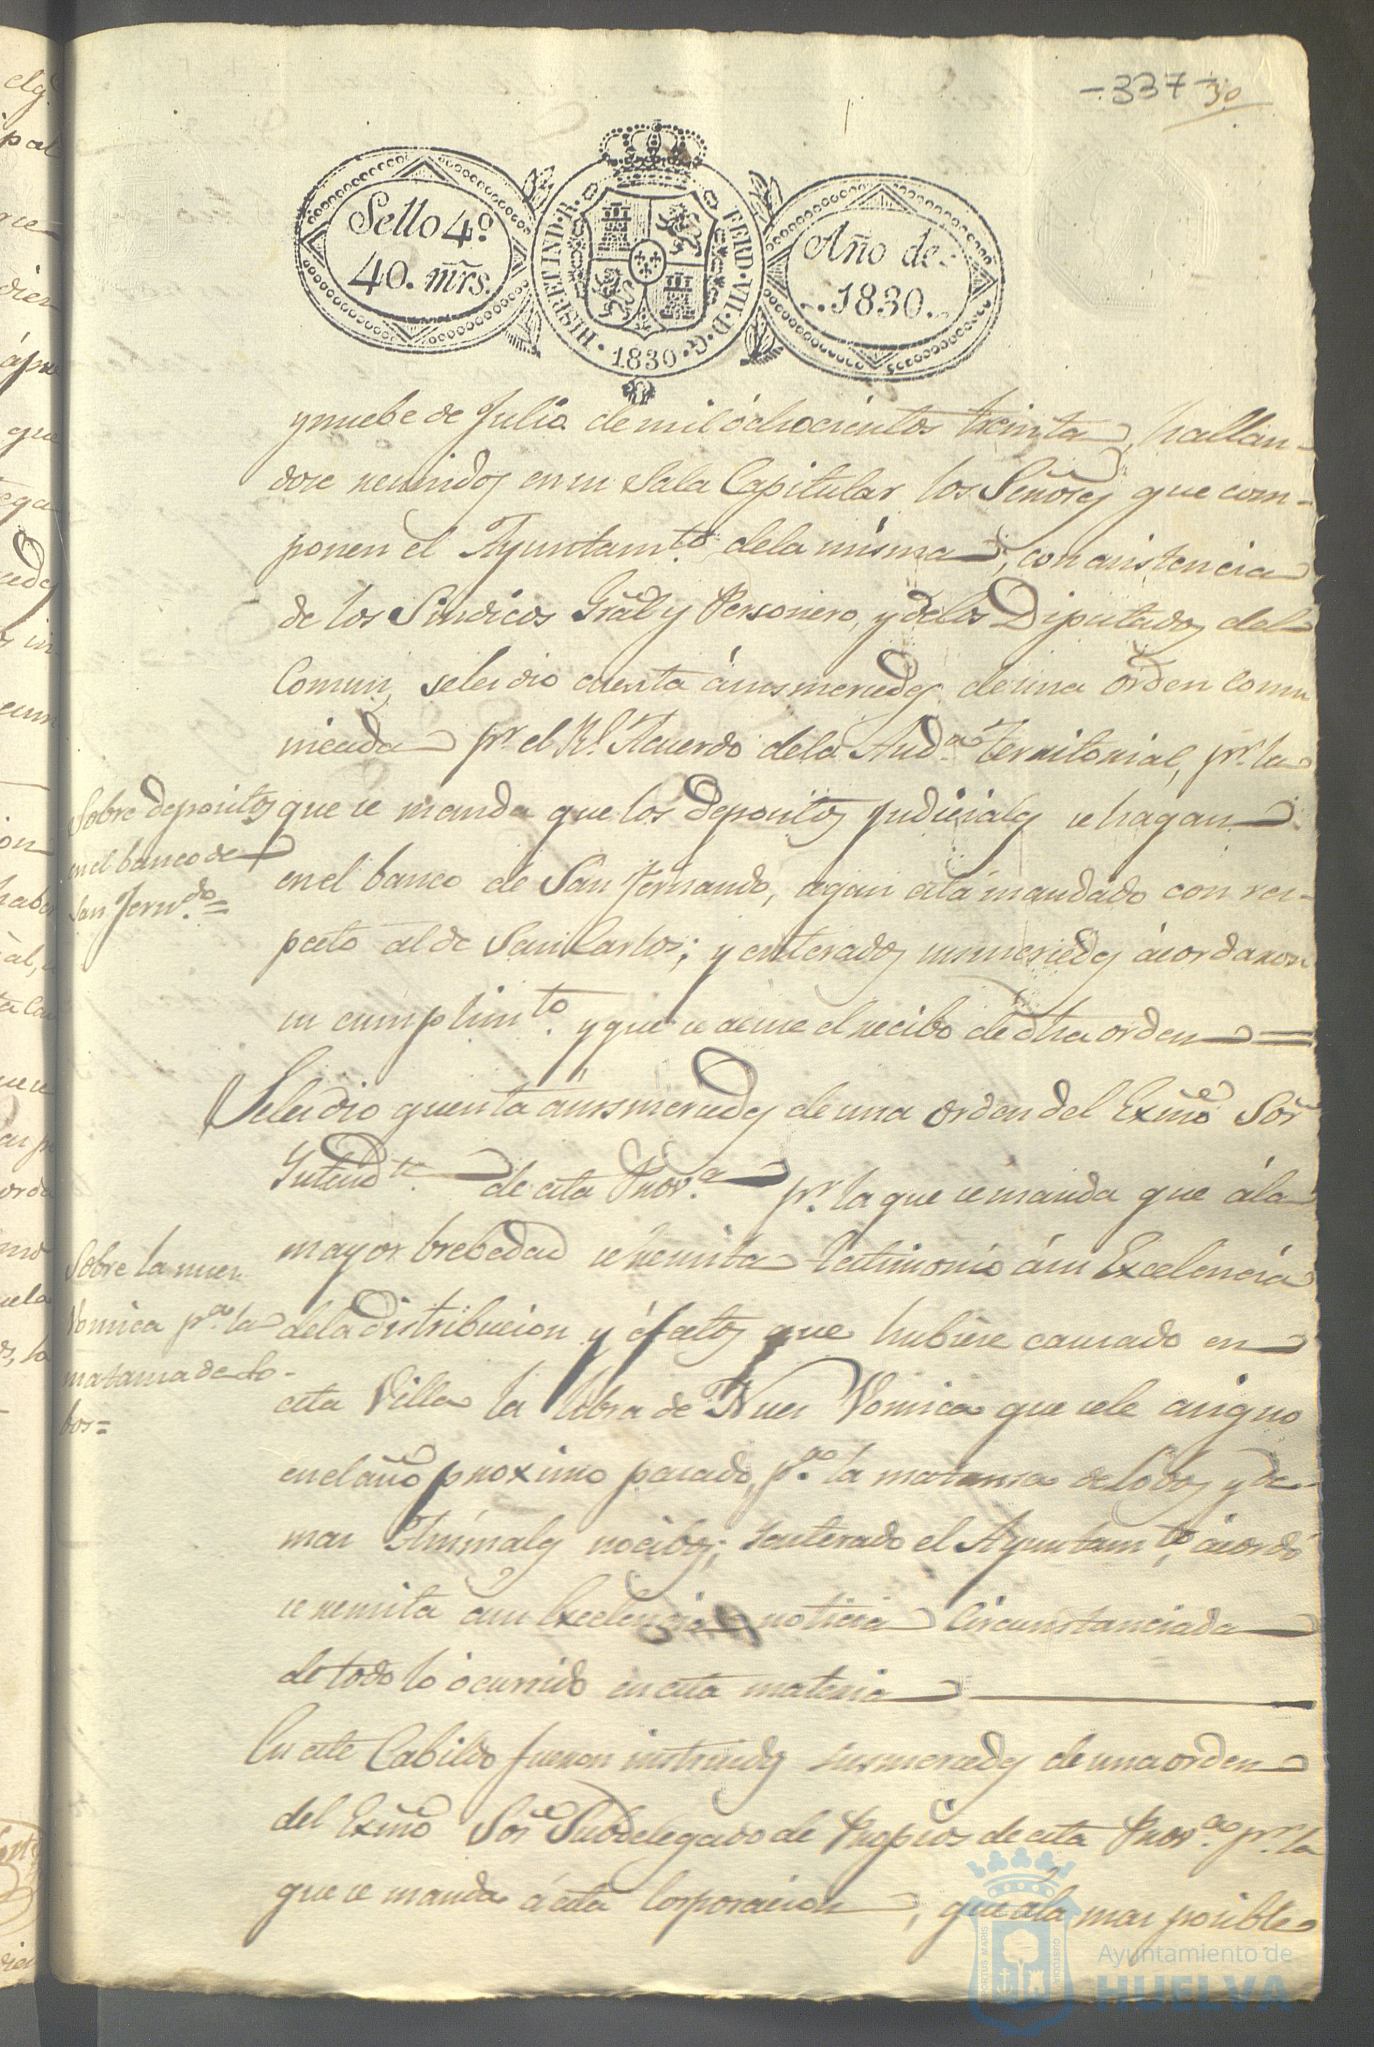 -337- 30
Sello 4º
40. mrs.
HISP. ET IND. R. FERD. VII. D. G.
1830
Año de
1830.
y nuebe de Julio de mil ochocientos treinta, hallan-
dose reunidos en su Sala Capitular los Señores que com-
ponen el Ayuntamto. dela misma, con asistencia
de los Sindicos Gral y Personero, y delos Diputados del
Comun, seles dio cuenta ásus mercedes de una orden comu
nicada pr. el Rl. Acuerdo dela Auda. territorial, pr. la
Sobre depositos
en el banco de
San Ferndo.=
que se manda que los depositos judiciales se hagan
en el banco de San Fernando, segun está mandado con res-
pecto al de San Carlos; y enterados sus mercedes ácordaron
su cumplimto. y que se acuse el recibo de dha orden=
Seles dio quenta ásus mercedes de una orden del Exmo Sor
Intendte. de esta Prova. pr. la que se manda que ála
mayor brebedad se remita testimonio ásu Excelencia
Sobre la nuez
Vomica pa. la
matansa de lo-
bos=
dela distribucion y éfectos que hubiere causado en
esta Villa la libra de Nuez Vomica que sele asigno
en el año proximo pasado, pa. la matansa de lobos y de-
mas Animales nocibos; yenterado el Ayuntamto. ácordó
se remita ásu Excelencia noticia Circunstanciada
de todo lo ócurrido en esta materia
En este Cabildo fueron instruidos sus mercedes de una orden
del Exmo Sor Subdelegado de Propios de esta Prova. pr. la
que se manda á esta Corporacion, que ála mas posible
Ayuntamiento de
HUELVA